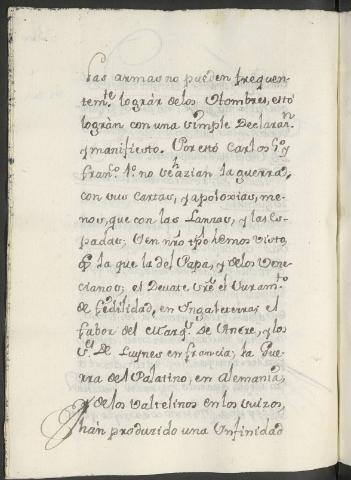 las armas no pueden frequen-
tem.te lográr de los Hombres, esto
logran con una simple Declaraz.n
y manifiesto. Por esto Carlos 5.o y
fran.co 1.o no hazian la guerra
con sus cartas, y apoloxias, me-
nos, que con las Lanzas, y las es-
padas; Y en nro tpo hemos visto
q.e la que la del Papa, y de los Vene-
cianos; el Devate sre el Juram.to
de fedilidad, en Ingalaterra; el
fabor del Marq.s De Ancre, y los
s.es De Luynes en francia; la Gue-
rra del Palatino, en Alemania,
y de los valtelinos en los suizos,
han produzido una Ynfinidad